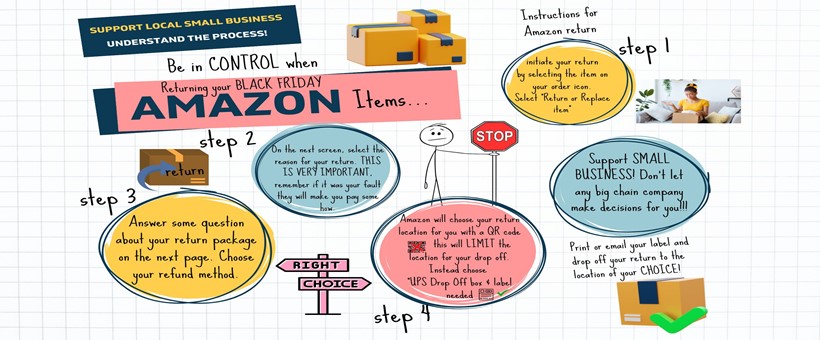 SUPPORT LOCAL SMALL BUSINESS
UNDERSTAND THE PROCESS!
Be in CONTROL when
Returning your BLACK FRIDAY
AMAZON Items...
Instructions for
Amazon return
step 1
initiate your return
by selecting the item on
your order icon.
Select "Return or Replace
item"
step 2
On the next screen, select the
reason for your return. THIS
IS VERY IMPORTANT,
remember if it was your fault
they will make you pay some
how.
step 3
return
Answer some question
about your return package
on the next page. Choose
your refund method.
RIGHT
CHOICE
STOP
step 4
Amazon will choose your return
location for you with a QR code
this will LIMIT the
location for your drop off.
Instead choose
"UPS Drop Off box & label
needed
Support SMALL
BUSINESS! Don't let
any big chain company
make decisions for you!!!
Print or email your label and
drop off your return to the
location of your CHOICE!